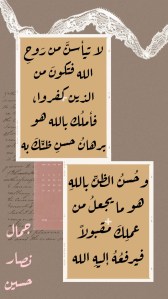 لا تيأسنَّ من رَوحِ
الله فتكون من
الذين كفروا،
فأملُك بالله هو
برهانُ حسنِ ظنّك به
وحُسنُ الظنِّ باللهِ
هو ما يجعلُ من
عملِكَ مقبولاً
فيرفعُهُ إليهِ الله
جمال
نصار
حسين